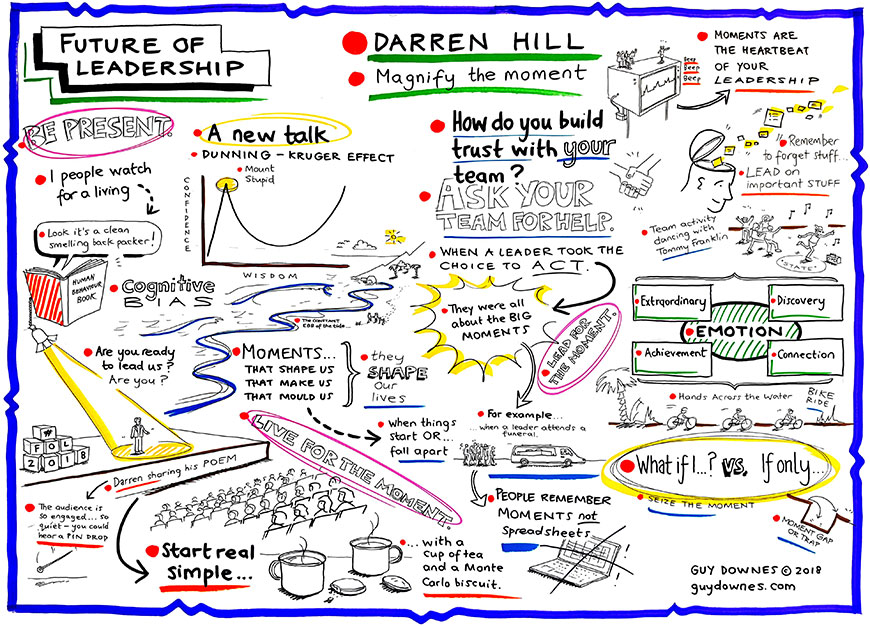 FUTURE OF
LEADERSHIP
DARREN HILL
Magnify the moment
Beep
Beep
Beep
MOMENTS ARE
THE HEARTBEAT
OF YOUR
LEADERSHIP
BE PRESENT.
I people watch
for a living
Look it's a clean
smelling back packer!
HUMAN
BEHAVIOUR
BOOK
A new talk
DUNNING - KRUGER EFFECT
Mount
Stupid
CONFIDENCE
WISDOM
Cognitive
BIAS
The constant
EBB of the tide...
How do you build
trust with your
team?
ASK YOUR
TEAM FOR HELP.
WHEN A LEADER TOOK THE
CHOICE TO ACT.
They were all
about the BIG
MOMENTS
LEAD FOR
THE MOMENT.
Remember
to forget stuff...
LEAD on
important STUFF
Team activity
dancing with
Tommy Franklin
"STATE"
Extraordinary
Discovery
EMOTION
Achievement
Connection
Hands Across the Water
BIKE
RIDE
Are you ready
to lead us?
Are you?
MOMENTS...
THAT SHAPE US
THAT MAKE US
THAT MOULD US
they
SHAPE
our
lives
When things
start OR...
fall apart
For example...
... when a leader attends a
funeral.
PEOPLE REMEMBER
MOMENTS not
Spreadsheets
What if I...? vs. If only...
SEIZE THE MOMENT
MOMENT GAP
OR TRAP
#
FOL
2018
LIVE FOR THE MOMENT.
Darren sharing his POEM
The audience is
so engaged... so
quiet - you could
hear a PIN DROP
Start real
simple...
... with a
cup of tea
and a Monte
Carlo biscuit.
GUY DOWNES © 2018
guydownes.com